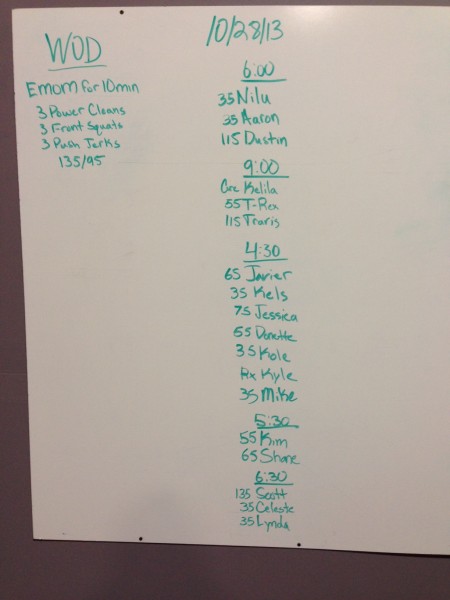 WOD
10/28/13
Emom for 10min
3 Power Cleans
3 Front Squats
3 Push Jerks
135/95
6:00
35 Nilu
35 Aaron
115 Dustin
9:00
Kalila
55 T-Rex
115 Travis
4:30
65 Javier
35 Kels
75 Jessica
55 Donette
35 Kole
Rx Kyle
35 Mike
5:30
55 Kim
65 Shane
6:30
135 Scott
35 Celeste
35 Lynda